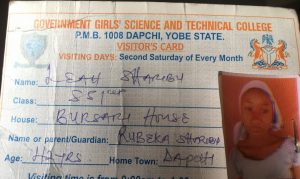 GOVERNMENT GIRLS' SCIENCE AND TECHNICAL COLLEGE
P.M.B. 1008 DAPCHI, YOBE STATE.
VISITOR'S CARD
VISITING DAYS: Second Saturday of Every Month
Name: LEAH SHARIBU
Class: SS1
House: BURSARI HOUSE
Name or parent/Guardian: RUBEKA SHARIBU
Age: 14YRS Home Town: DAPCHI
Visiting time is from